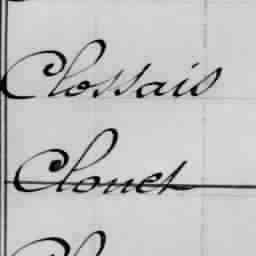 Clossais
Clouet